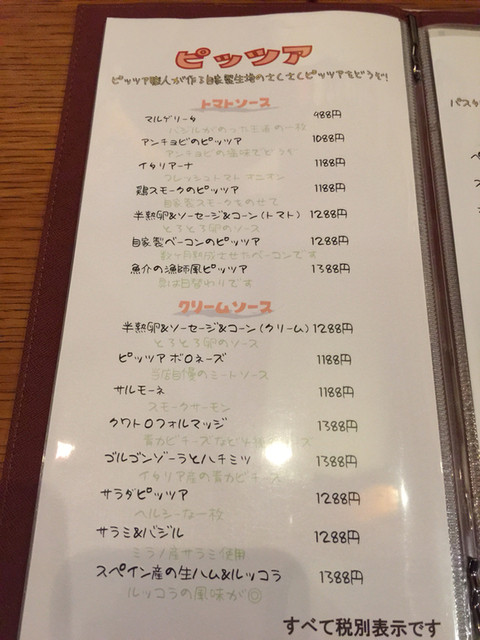 ピッツァ
ピッツァ職人が作る自家製生地のさくさくピッツァをどうぞ!
トマトソース
マルゲリータ 988円
バジルがのった王道の一枚
アンチョビのピッツァ 1088円
アンチョビの塩味でどうぞ
イタリアーナ 1188円
フレッシュトマトマニマン
鶏スモークのピッツァ 1188円
自家製スモークをのせて
半熟卵&ソーセージ&コーン(トマト) 1288円
とろとろ卵のソース
自家製ベーコンのピッツァ 1288円
熟成させたベーコンです
魚介の漁師風ピッツァ 1388円
具は日替わりです
クリームソース
半熟卵&ソーセージ&コーン(クリーム) 1288円
とろとろ卵のソース
ピッツァボロネーズ 1188円
当店自慢のミートソース
サルモーネ 1188円
スモークサーモン
クワトロフォルマッジ 1388円
青カビチーズなど4種
ゴルゴンゾーラとハチミツ 1388円
イタリア産の青カビチーズ
サラダピッツァ 1288円
ヘルシーな一枚
サラミ&バジル 1288円
ミラノ産サラミ使用
スペイン産の生ハム&ルッコラ 1388円
ルッコラの風味が◎
すべて税別表示です
パスタ